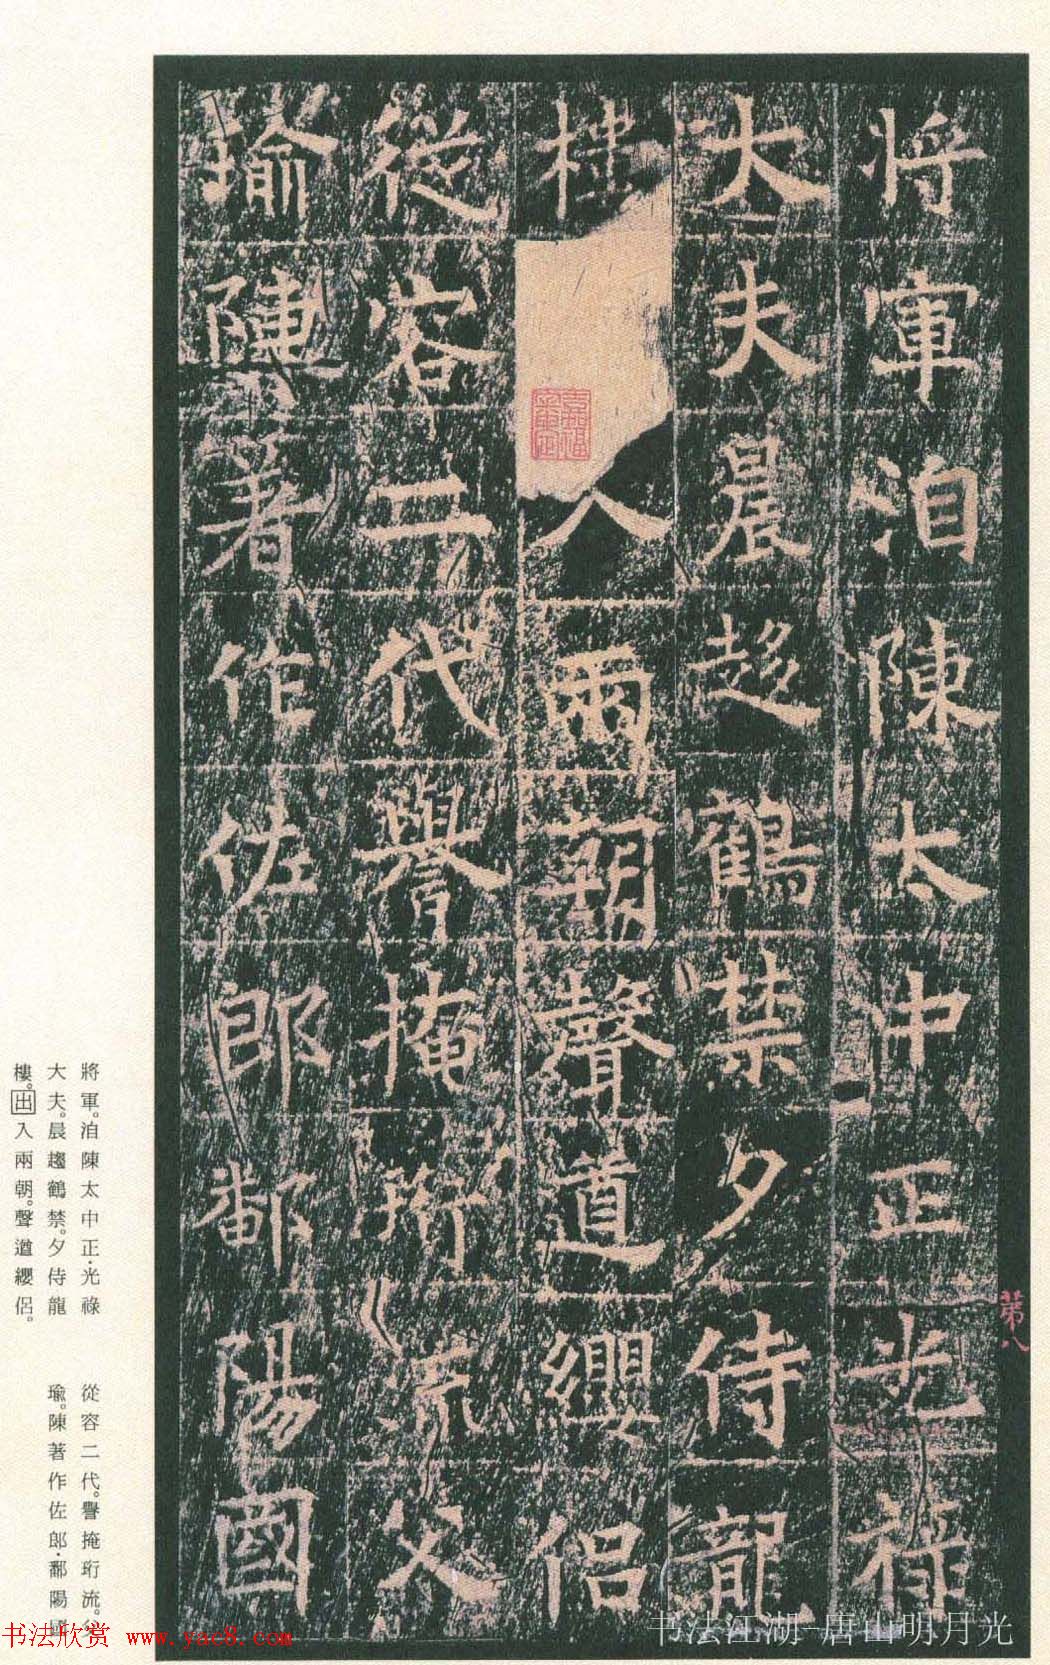 將軍洎陳太中正光祿
大夫晨趍鶴禁夕侍龍
樓入兩朝聲道纓侶
從容二代譽掩珩流父
瑜陳著作佐郎鄱陽國
第八
將軍。洎陳太中正·光祿
大夫。晨趨鶴禁。夕侍龍
樓。出入兩朝。聲遒纓侶。
從容二代。譽掩珩流。父
瑜。陳著作佐郎·鄱陽國
书法欣赏 www.yac8.com
书法江湖-唐山明月光